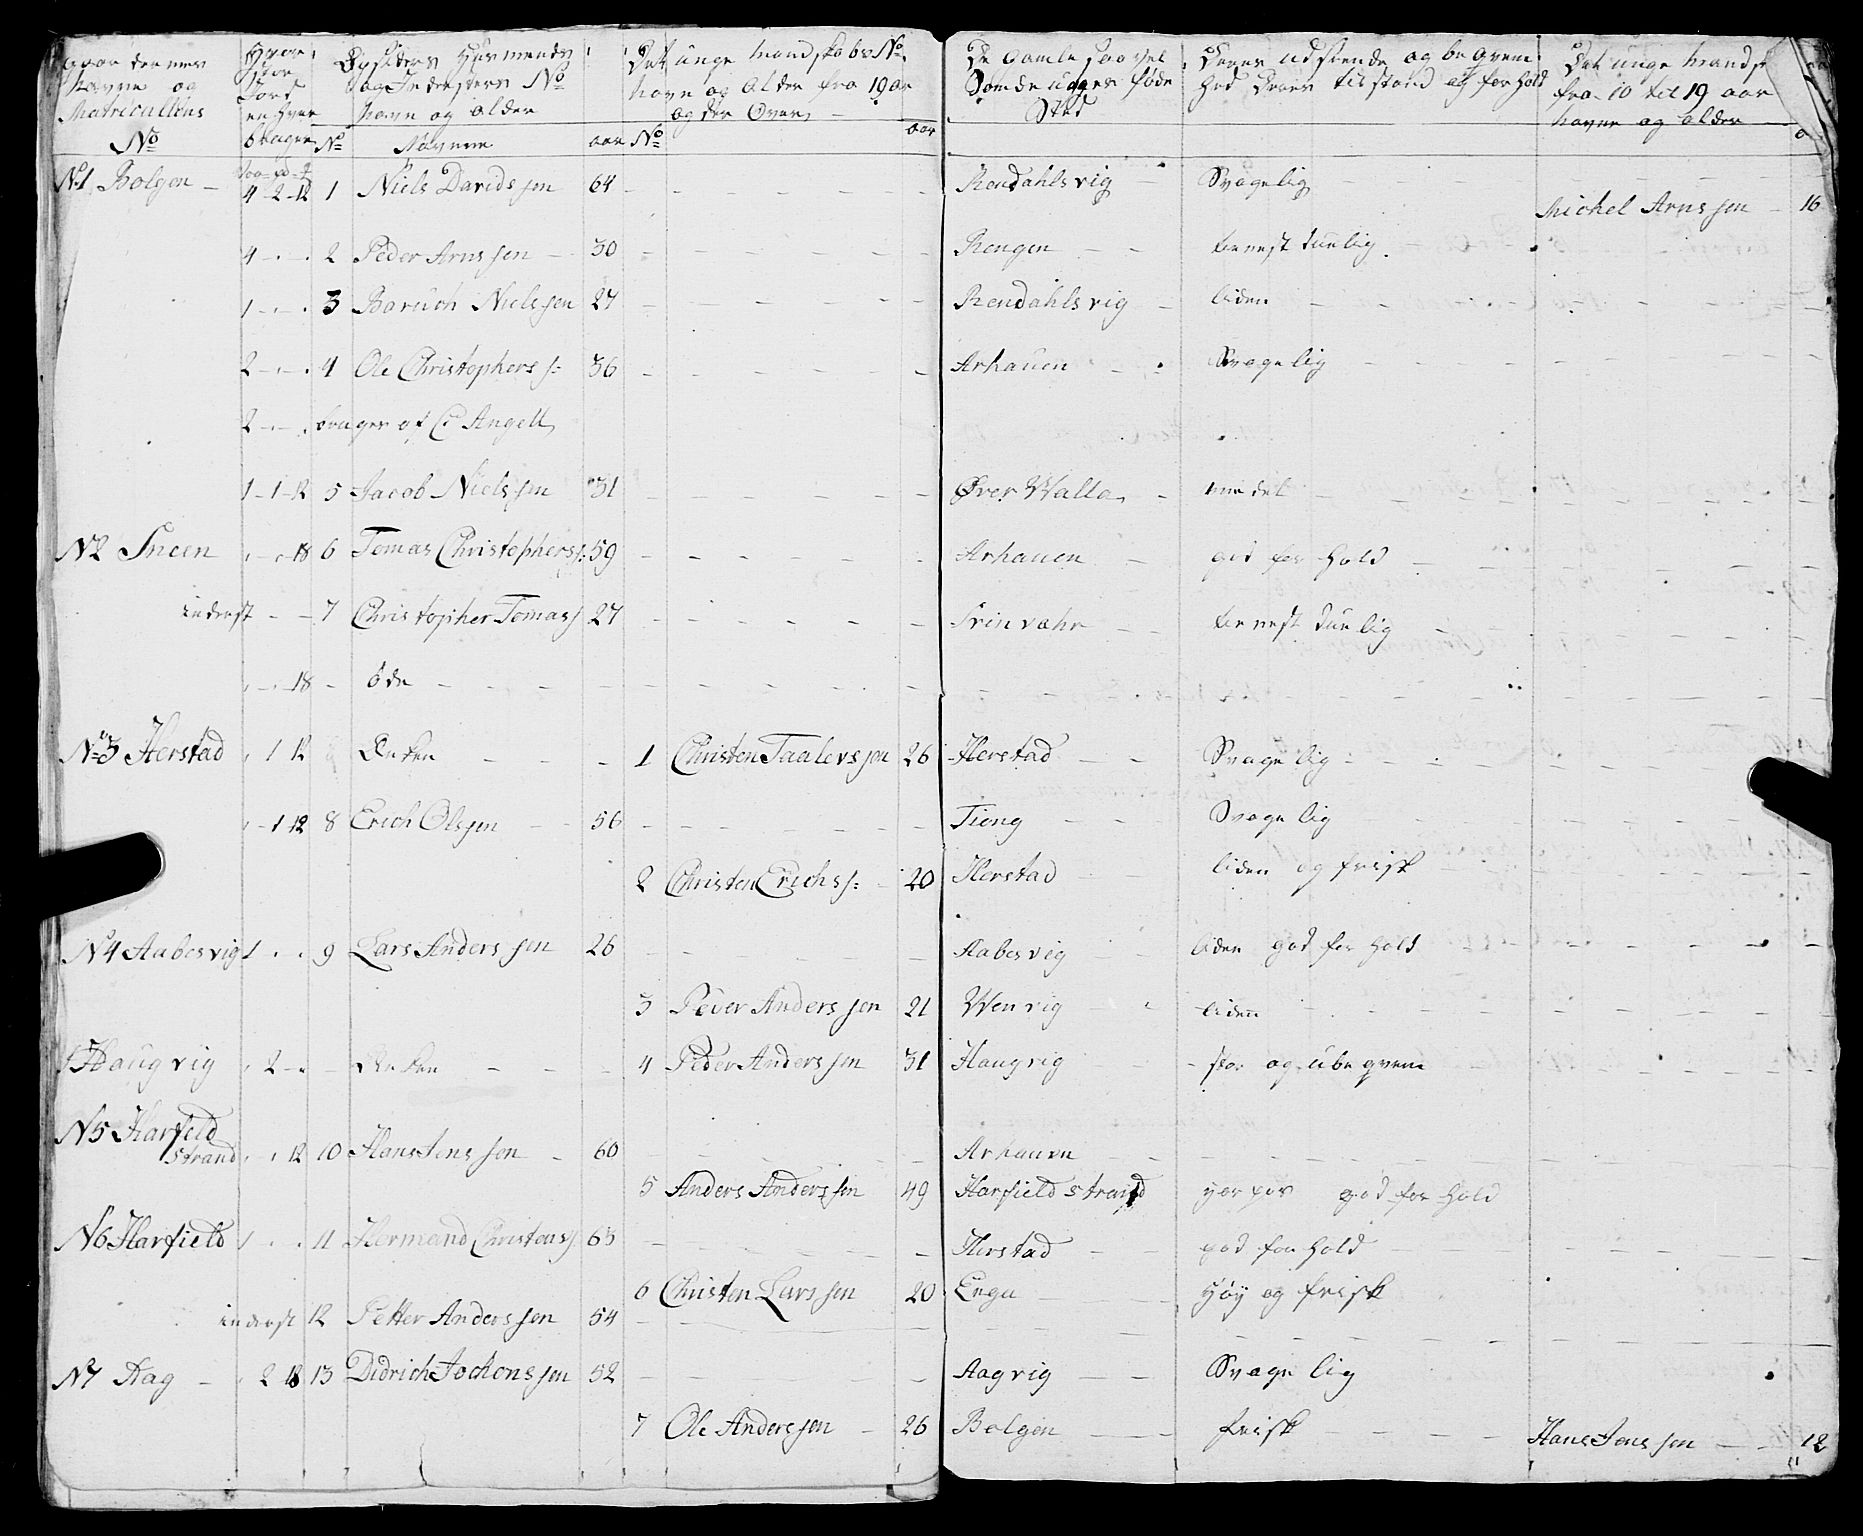 gaardernes
Navne og
Matricullens
No
Hvor
stor
Jord
en hver
bruger
No
Opsiders Husmends
og Indersters No
Navne og alder
Navne
aar
Det unge Mandskabs No
Navne og Alder fra 19 aar
og der Over
No
aar
De gamle saa vel
Som de unges føde
Sted
Deres udseende og beqvem
hed Deres tilstand og forhold
Det unge Mands
fra 10 til 19 aar
Navne og alder
N1 Bolgen 4 - 2 - 12 1 Niels Davidssen 64 Rendahlsvig Svagelig
Michel Arnssen 16
4 2 Peder Arnssen 30 Rengen tienest duelig
1 3 Baruch Nielssen 27 Rendahlsvig liden
2 4 Ole Christophers s: 36 Arhauen Svagelig
2 bruges af C Angell
1 - 1 - 12 5 Jacob Nielssen 31 Øver Walla middel
N2 Sneen 18 6 Tomas Christophers s: 59 Arhauen got forhold
inderst 7 Christopher Tomass 27 Srinvæhr tienest duelig
18 öde
No 3 Herstad 1 12 Enken 1 Christen Taalevssen 26 Herstad Svagelig
1 12 8 Erich Olssen 56 Tieng Svagelig
2 Christen Erichs s: 20 Herstad liden og frisk
N4 Aabesvig 1 9 Lars Anderssen 26 Aabesvig liden god forhold
3 Peder Anderssen 21 Wenvig liden
Haugvig 2 Enken 4 Peder Anderssen 31 Haugvig stor og ubeqvem
N5 Harfield
strand 12 10 Hans Jenssen 60 Arhauen
5 Anders Anderssen 49 Harfield strand god forhold
N6 Harfield 1 11 Hermand Christens s 63 Herstad god forhold
6 Christen Larssen 20 Enga Høy og frisk
inderst 12 Petter Anderssen 54
N7 Aag 2 18 13 Didrich Jochenssen 52 Aagvig Svagelig
7 Ole Anderssen 26 Bolgen frisk Hans Jenssen 12